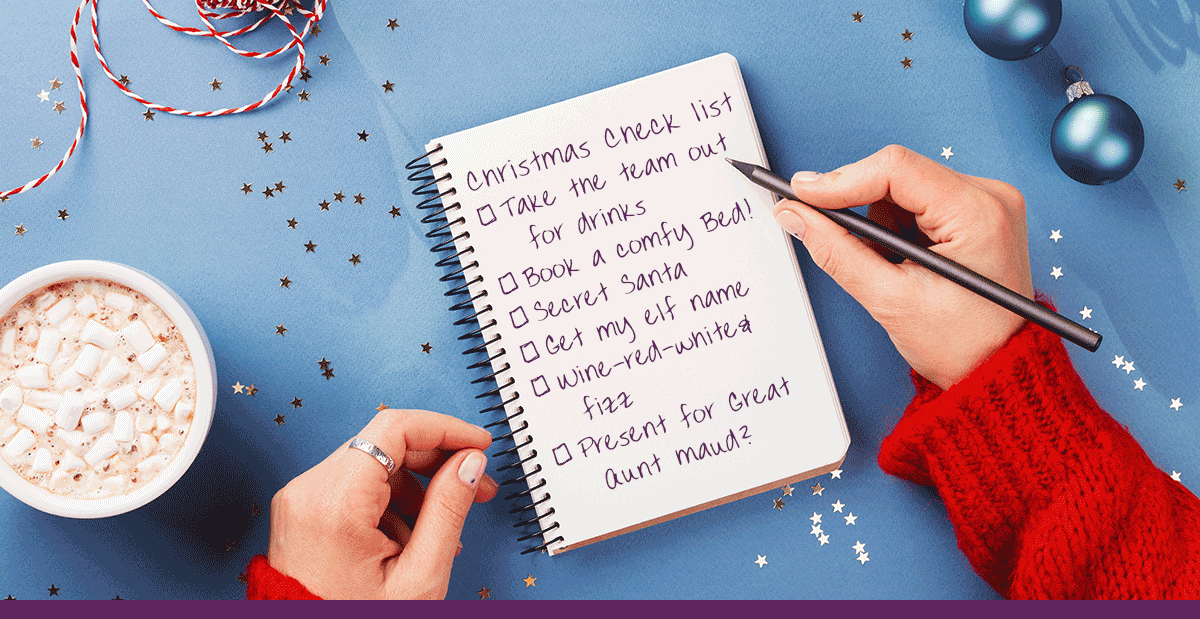 Christmas Check list
□ Take the team out
for drinks
□ Book a comfy Bed!
□ Secret Santa
□ Get my elf name
□ wine-red-white&
fizz
□ Present for Great
Aunt maud?